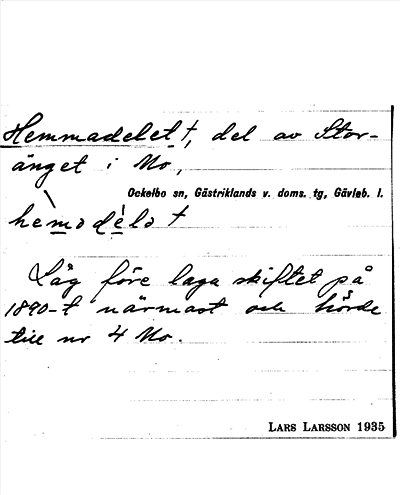 Hemmadelet †, del av Stor-
änget i Mo,
Ockelbo sn, Gästriklands v. doms. tg, Gävleb. l.
hemadelat
Låg före laga skiftet på
1890-t närmast och hörde
till nr 4 Mo.
LARS LARSSON 1935